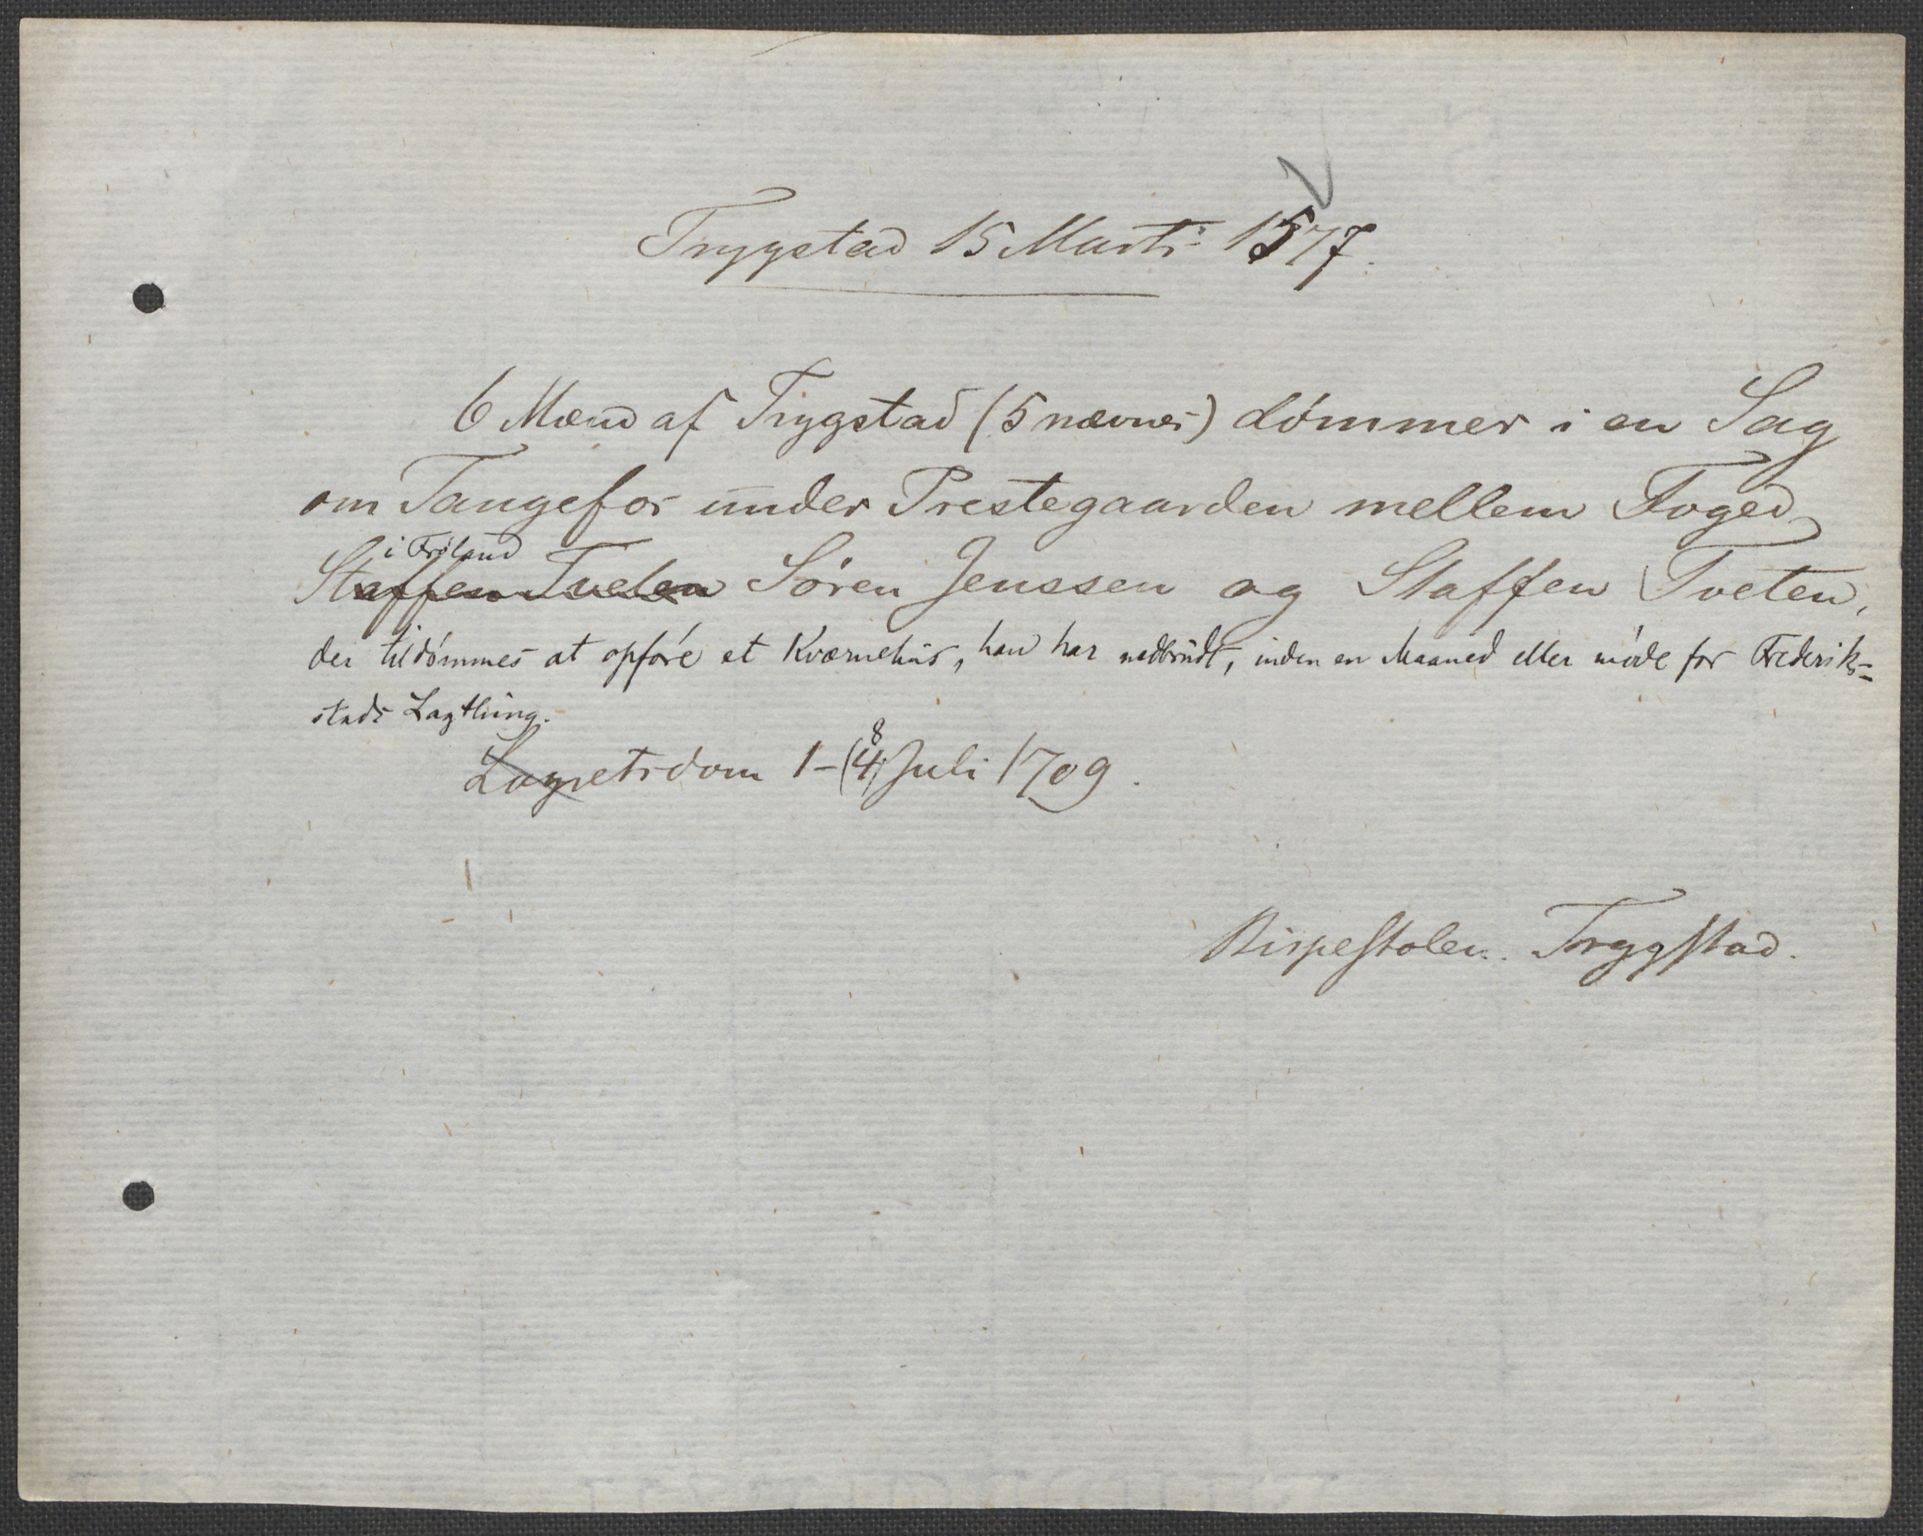 Trygstad 15 Marts 1577.
6 Mænd af Trygstad (5 nævnes) dømmer i en Sag
om Tangefos under Prestegaarden mellem Foged
i Frøland
Staffen Tveten Søren Jenssen og Staffen Tveten,
der tildømmes at opføre et Kværnehus, han har nedbrudt, inden en Maaned eller møde for Frederik-
stads Lagthing.
8
Lagretsdom 1-(4) Juli 1709.
Bispestolen. Trygstad.